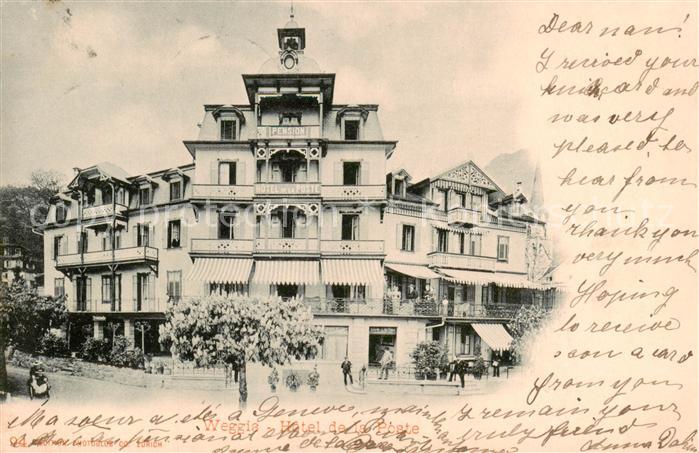 PENSION
HOTEL DE LA POSTE
Dear nan!
I recived your
kind card and
was very
pleased to
hear from
you.
thank you
very much
Hoping
to receive
soon a card
from you
I remain your
truly friend
Ma soeur a été à Genève,
pensionnat
Weggis - Hôtel de la Poste
PHOTOGLOB CO. ZÜRICH